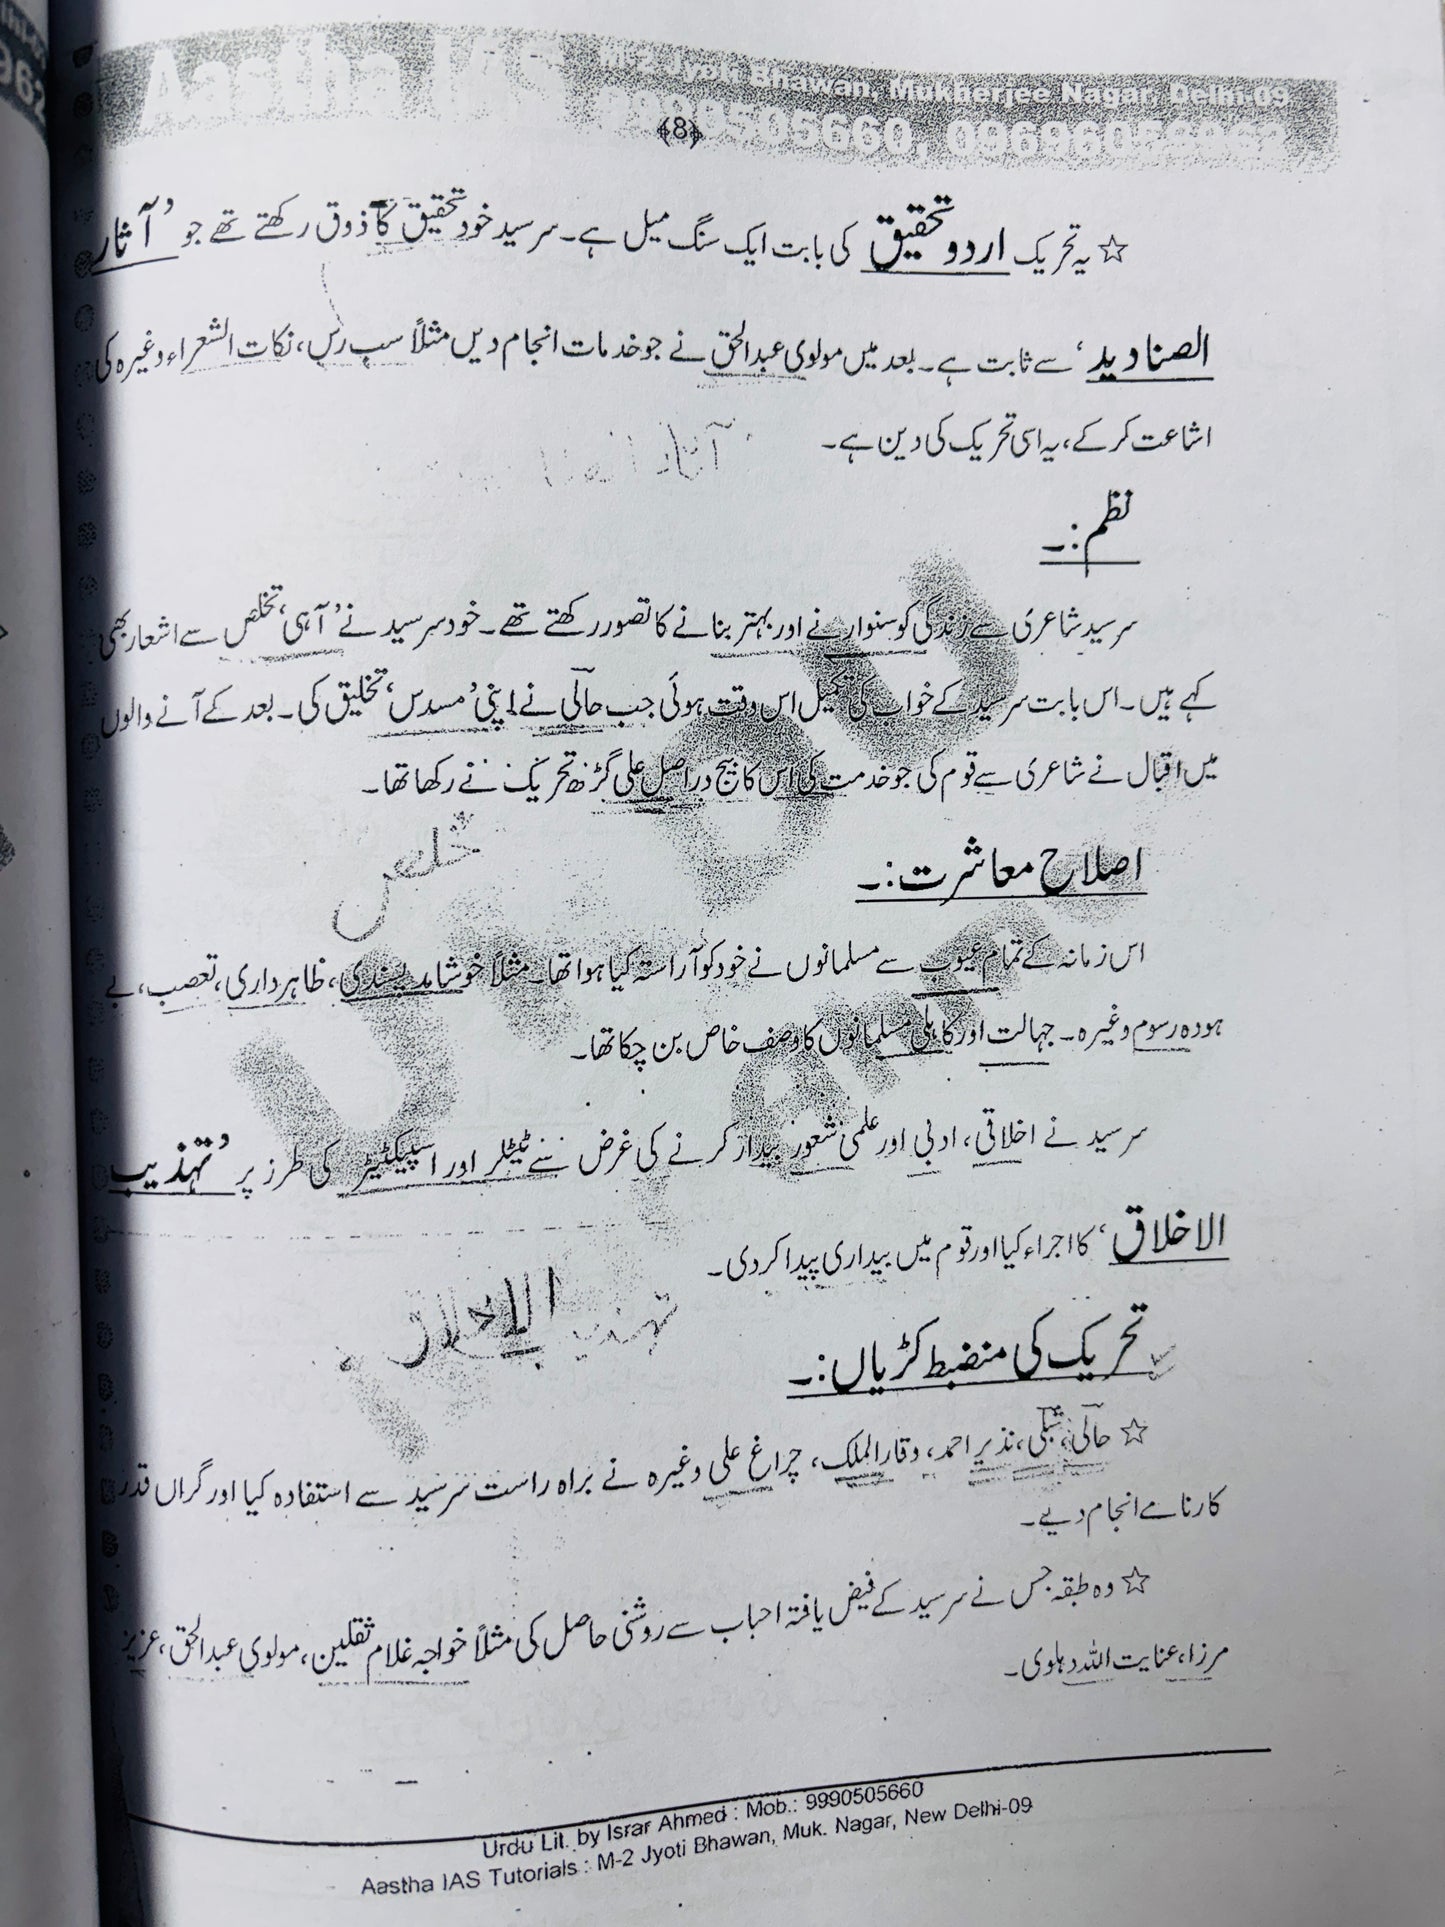 Aastha IAS M-2 Jyoti Bhawan, Mukherjee Nagar, Delhi-09
9990505660, 09696058962
﴾8﴿
☆ یہ تحریک اردو تحقیق کی بابت ایک سنگ میل ہے۔ سرسید خود تحقیق کا ذوق رکھتے تھے جو ’آثار
الصنادید‘ سے ثابت ہے۔ بعد میں مولوی عبدالحق نے جو خدمات انجام دیں مثلاً سب رس، نکات الشعراء وغیرہ کی
اشاعت کر کے، یہ اسی تحریک کی دین ہے۔
نظم:۔
سرسید شاعری سے زندگی کو سنوارنے اور بہتر بنانے کا تصور رکھتے تھے۔ خود سرسید نے ’آہی‘ تخلص سے اشعار بھی
کہے ہیں۔ اس بابت سرسید کے خواب کی تکمیل اس وقت ہوئی جب حالی نے اپنی ’مسدس‘ تخلیق کی۔ بعد کے آنے والوں
میں اقبال نے شاعری سے قوم کی جو خدمت کی اس کا بیج دراصل علی گڑھ تحریک نے رکھا تھا۔
اصلاح معاشرت:۔
اس زمانہ کے تمام عیوب سے مسلمانوں نے خود کو آراستہ کیا ہوا تھا۔ مثلاً خوشامد پسندی، ظاہرداری، تعصب، بے
ہودہ رسوم وغیرہ۔ جہالت اور کاہلی مسلمانوں کا وصف خاص بن چکا تھا۔
سرسید نے اخلاقی، ادبی اور علمی شعور بیدار کرنے کی غرض سے ٹیٹلر اور اسپیکٹیٹر کی طرز پر ’تہذیب
الاخلاق‘ کا اجراء کیا اور قوم میں بیداری پیدا کر دی۔
تہذیب الاخلاق
تحریک کی منضبط کڑیاں:۔
☆ حالی، شبلی، نذیر احمد، وقار الملک، چراغ علی وغیرہ نے براہ راست سرسید سے استفادہ کیا اور گراں قدر
کارنامے انجام دیے۔
☆ وہ طبقہ جس نے سرسید کے فیض یافتہ احباب سے روشنی حاصل کی مثلاً خواجہ غلام ثقلین، مولوی عبدالحق، عزیز
مرزا، عنایت اللہ دہلوی۔
Urdu Lit. by Israr Ahmed : Mob.: 9990505660
Aastha IAS Tutorials : M-2 Jyoti Bhawan, Muk. Nagar, New Delhi-09